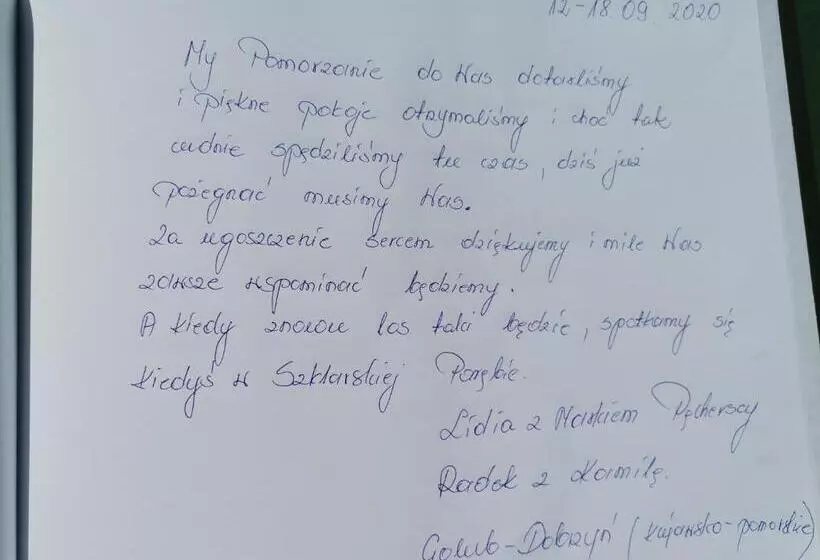 12-18.09.2020
My Pomorzanie do Was dotarliśmy
i piękne pokoje otrzymaliśmy i choć tak
cudnie spędziliśmy tu czas, dziś już
pożegnać musimy Was.
Za ugoszczenie sercem dziękujemy i mile Was
zawsze wspominać będziemy.
A kiedy znowu los taki będzie, spotkamy się
kiedyś w Szklarskiej Porębie.
Lidia z Markiem Pęcherscy
Radek z Kamilą.
Golub-Dobrzyń (kujawsko-pomorskie)